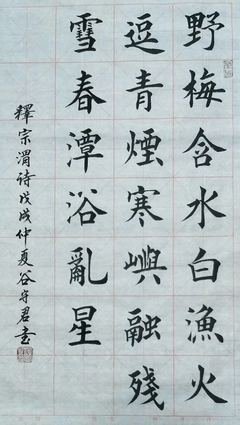 野梅含水白漁火
逗青煙寒嶼融殘
雪春潭浴亂星
釋宗渭诗戊戌仲夏谷守君书